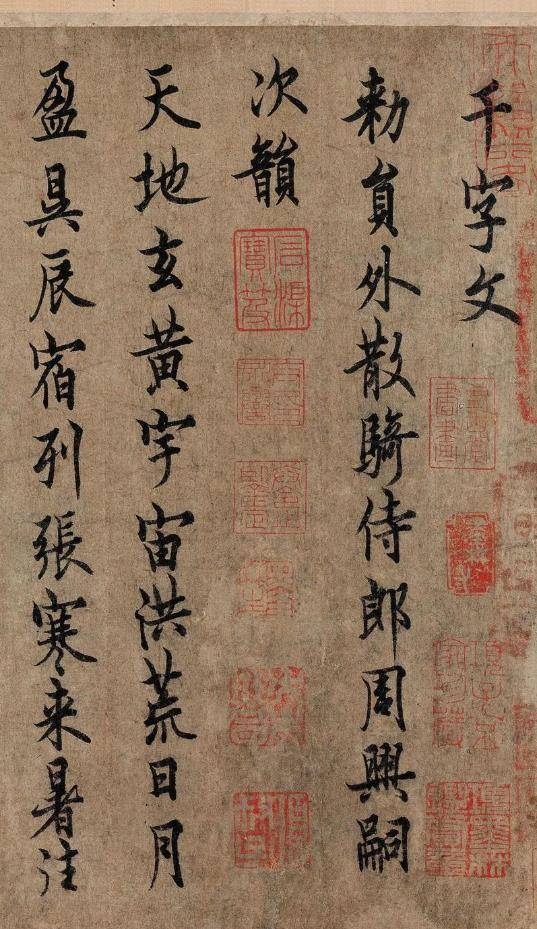 千字文
勑員外散騎侍郎周興嗣
次韻
天地玄黃宇宙洪荒日月
盈昃辰宿列張寒来暑往